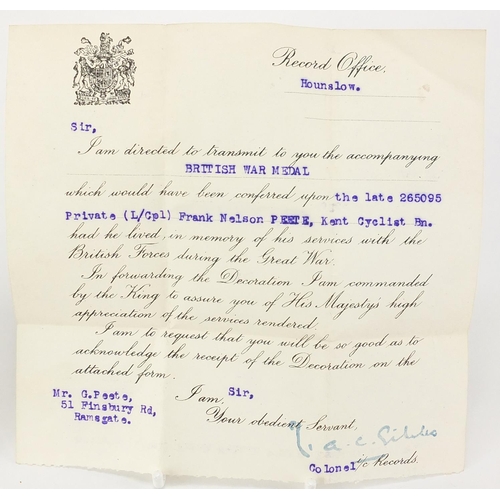 Record Office,
Hounslow.
Sir,
I am directed to transmit to you the accompanying
BRITISH WAR MEDAL
which would have been conferred upon the late 265095
Private (L/Cpl) Frank Nelson PEETE, Kent Cyclist Bn.
had he lived, in memory of his services with the
British Forces during the Great War.
In forwarding the Decoration I am commanded
by the King to assure you of His Majesty's high
appreciation of the services rendered.
I am to request that you will be so good as to
acknowledge the receipt of the Decoration on the
attached form.
I am, Sir,
Your obedient Servant,
Mr. G.Peete,
51 Finsbury Rd,
Ramsgate.
Colonel i/c Records.